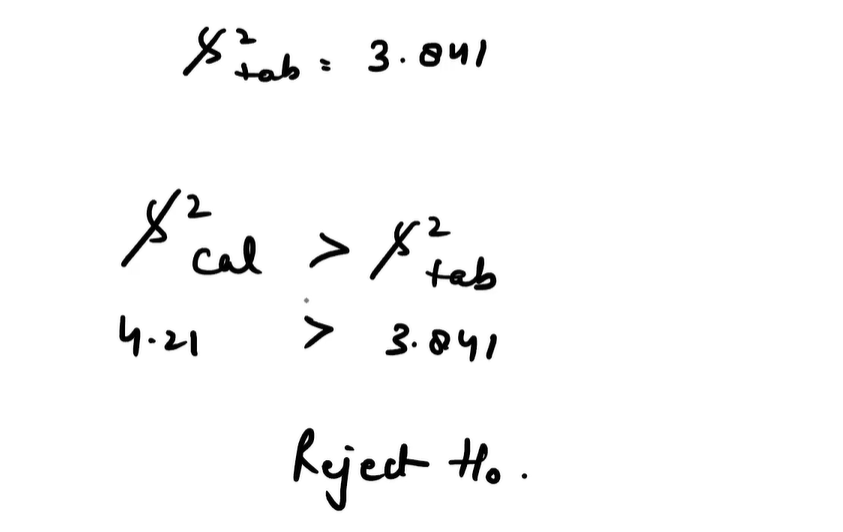 χ²tab = 3.841
χ²cal > χ²tab
4.21 > 3.841
Reject H₀.